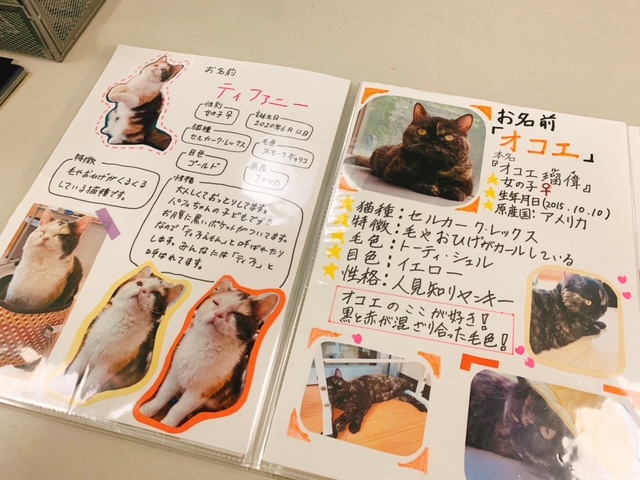 お名前
ティファニー
性別
女の子♀
誕生日
2020年6月12日
猫種
セルカークレックス
毛色
スモークキャリコ
目色
ゴールド
原産
アメリカ
特徴
毛やおひげがくるくる
している猫種です。
性格
大人しくておっとりしてます。
お腹に黒いポケットがついてます。
なので「ティラえもん」と呼ばれたり
します。みんなには「ティラ」と
呼ばれてます。
お名前
「オコエ」
本名
『オコエ瑠偉』
女の子♀
生年月日(2015.10.10)
原産国:アメリカ
猫種:セルカークレックス
特徴:毛やおひげがカールしている
毛色:トーティ・シェル
目色:イエロー
性格:人見知りヤンキー
オコエのここが好き!
黒と赤が混ざり合った毛色!